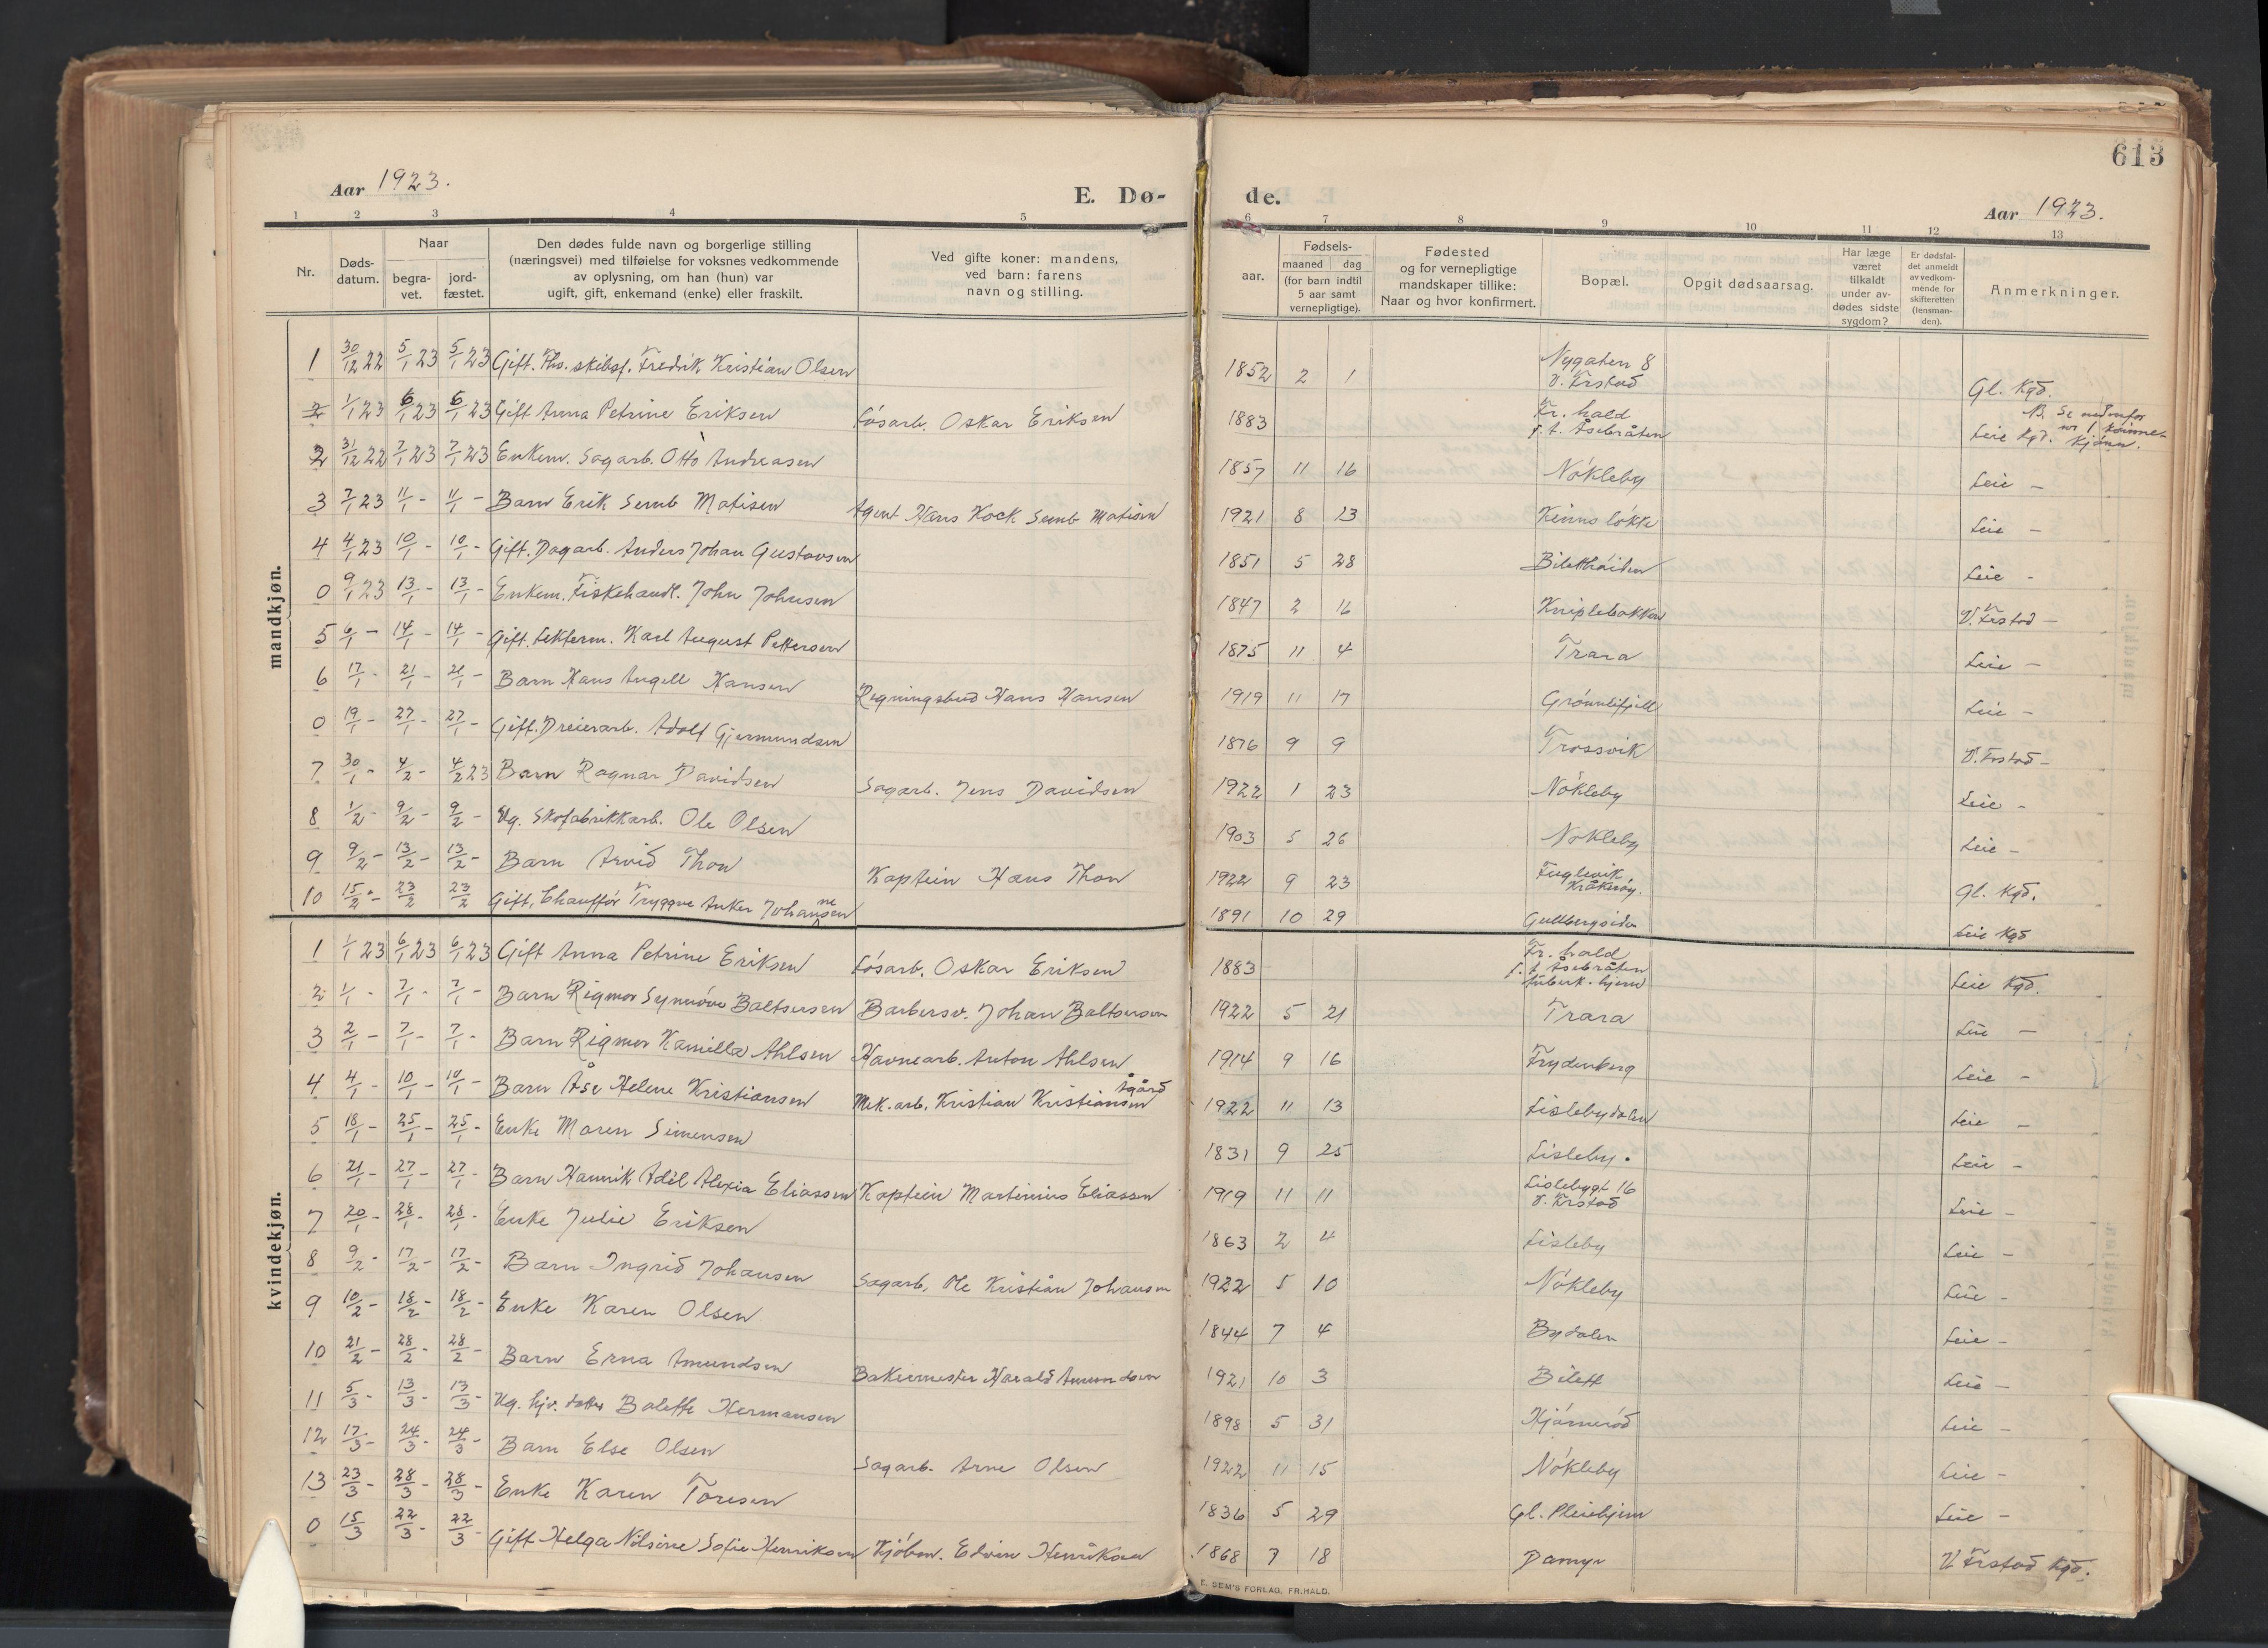 613
Aar 1923.
E. Dø-
de.
Aar 1923.
1 2 3 4 5 6 7 8 9 10 11 12 13
Nr.
Døds-
datum.
Naar
begra-
vet.
jord-
fæstet.
Den dødes fulde navn og borgerlige stilling
(næringsvei) med tilføielse for voksnes vedkommende
av oplysning, om han (hun) var
ugift, gift, enkemand (enke) eller fraskilt.
Ved gifte koner: mandens,
ved barn: farens
navn og stilling.
aar.
Fødsels-
maaned dag
(for barn indtil
5 aar samt
vernepligtige).
Fødested
og for vernepligtige
mandskaper tillike:
Naar og hvor konfirmert.
Bopæl.
Opgit dødsaarsag.
Har læge
været
tilkaldt
under av-
dødes sidste
sygdom?
Er dødsfal-
det anmeldt
av vedkom-
mende for
skifteretten
(lensman-
den).
Anmerkninger.
mandkjøn.
1 30/12 22 5/1 23 5/1 23 Gift. Fhv. skibsf. Fredrik Kristian Olsen 1852 2 1 Nygaten 8 V. Frstad Gl. Kgd.
2 1/1 23 6/1 23 6/1 23 Gift Anna Petrine Eriksen Løsarb. Oskar Eriksen 1883 Fr. hald f. t. Åsebråten Leie Kgd. NB. Se nedenfor nr 1 kvinnek kjønn.
2 31/12 22 7/1 23 7/1 23 Enkem. Sagarb. Otto Andreasen 1857 11 16 Nøkleby Leie -
3 7/1 23 11/1 - 11/1 - Barn Erik Semb Matisen Agent Hans Kock Semb Matisen 1921 8 23 Kinnsløkke Leie -
4 4/1 23 10/1 - 10/1 - Gift. Dagarb. Anders Johan Gustavsen 1851 5 28 Biletthøiden Leie -
0 9/1 23 13/1 - 13/1 - Enkem. Fiskehandl. John Johnsen 1847 2 16 Kniplebakken V. Frstad -
5 6/1 - 14/1 - 14/1 - Gift. Lekterm. Karl August Pettersen 1875 11 4 Trara Leie -
6 17/1 - 21/1 - 21/1 - Barn Hans Angell Hansen Regningsbud Hans Hansen 1919 11 17 Grønnlifjell Leie -
0 19/1 - 27/1 - 27/1 - Gift. Dreierarb. Adolf Gjermundsen 1876 9 9 Trossvik V. Frstad -
7 30/1 - 4/2 - 4/2 23 Barn Ragnar Davidsen Sagarb. Jens Davidsen 1922 1 23 Nøkleby Leie -
8 1/2 - 9/2 - 9/2 - Ug. Skofabrikkarb. Ole Olsen 1903 5 26 Nøkleby Leie -
9 9/2 - 13/2 - 13/2 - Barn Arvid Thon Kaptein Hans Thon 1922 9 23 Fuglevik, Kråkerøy. Gl. Kgd.
10 15/2 - 23/2 23/2 Gift, Chauffør Tryggve Anker Johannesen 1891 10 29 Gullbergsiden Leie Kgd
kvindekjøn.
1 1/1 23 6/1 23 6/1 23 Gift Anna Petrine Eriksen Løsarb. Oskar Eriksen 1883 Fr. hald f. t Åsebråten tuberk. hjem Leie Kgd.
2 1/1 - 7/1 - 7/1 - Barn Rigmor Synnøve Baltsersen Barbersv. Johan Baltsersen 1922 5 21 Trara Leie -
3 2/1 - 7/1 - 7/1 - Barn Rigmor Kamilla Ahlsen Havnearb. Anton Ahlsen 1914 9 16 Frydenberg Leie -
4 4/1 - 10/1 - 10/1 - Barn Åse Helene Kristiansen Mek. arb. Kristian Kristiansen Ågård 1922 11 13 Lislebydalen Leie -
5 18/1 - 25/1 - 25/1 - Enke Maren Simensen 1831 9 25 Lisleby. Leie -
6 21/1 - 27/1 - 27/1 - Barn Hannrik Adèl Alexia Eliassen Kaptein Martinius Eliassen 1919 11 11 Lislebygt 16 V. Frstad Leie -
7 20/1 - 28/1 - 28/1 - Enke Julie Eriksen 1863 2 4 Lisleby Leie -
8 9/2 - 17/2 - 17/2 - Barn Ingrid Johansen Sagarb. Ole Kristian Johansen 1922 5 10 Nøkleby Leie -
9 10/2 - 18/2 - 18/2 - Enke Karen Olsen 1844 7 4 Bydalen Leie -
10 21/2 - 28/2 - 28/2 - Barn Erna Amundsen Bakermester Harald Amundsen 1921 10 3 Bilett Leie -
11 5/3 - 13/3 - 13/3 - Ug. hjv. datter Balette Hermansen 1898 5 31 Hjørnerød Leie -
12 17/3 - 24/3 - 24/3 - Barn Else Olsen Sagarb. Arne Olsen 1922 11 15 Nøkleby Leie -
13 23/3 - 28/3 - 28/3 - Enke Karen Toresen 1836 5 29 Gl. Pleiehjem Leie -
0 15/3 22/3 - 22/3 - Gift Helga Nilsine Sofie Henriksen Kjøbm. Edvin Henriksen 1868 7 18 Damyr V. Frstad Kgd.
E. SEM'S FORLAG, FR.HALD.